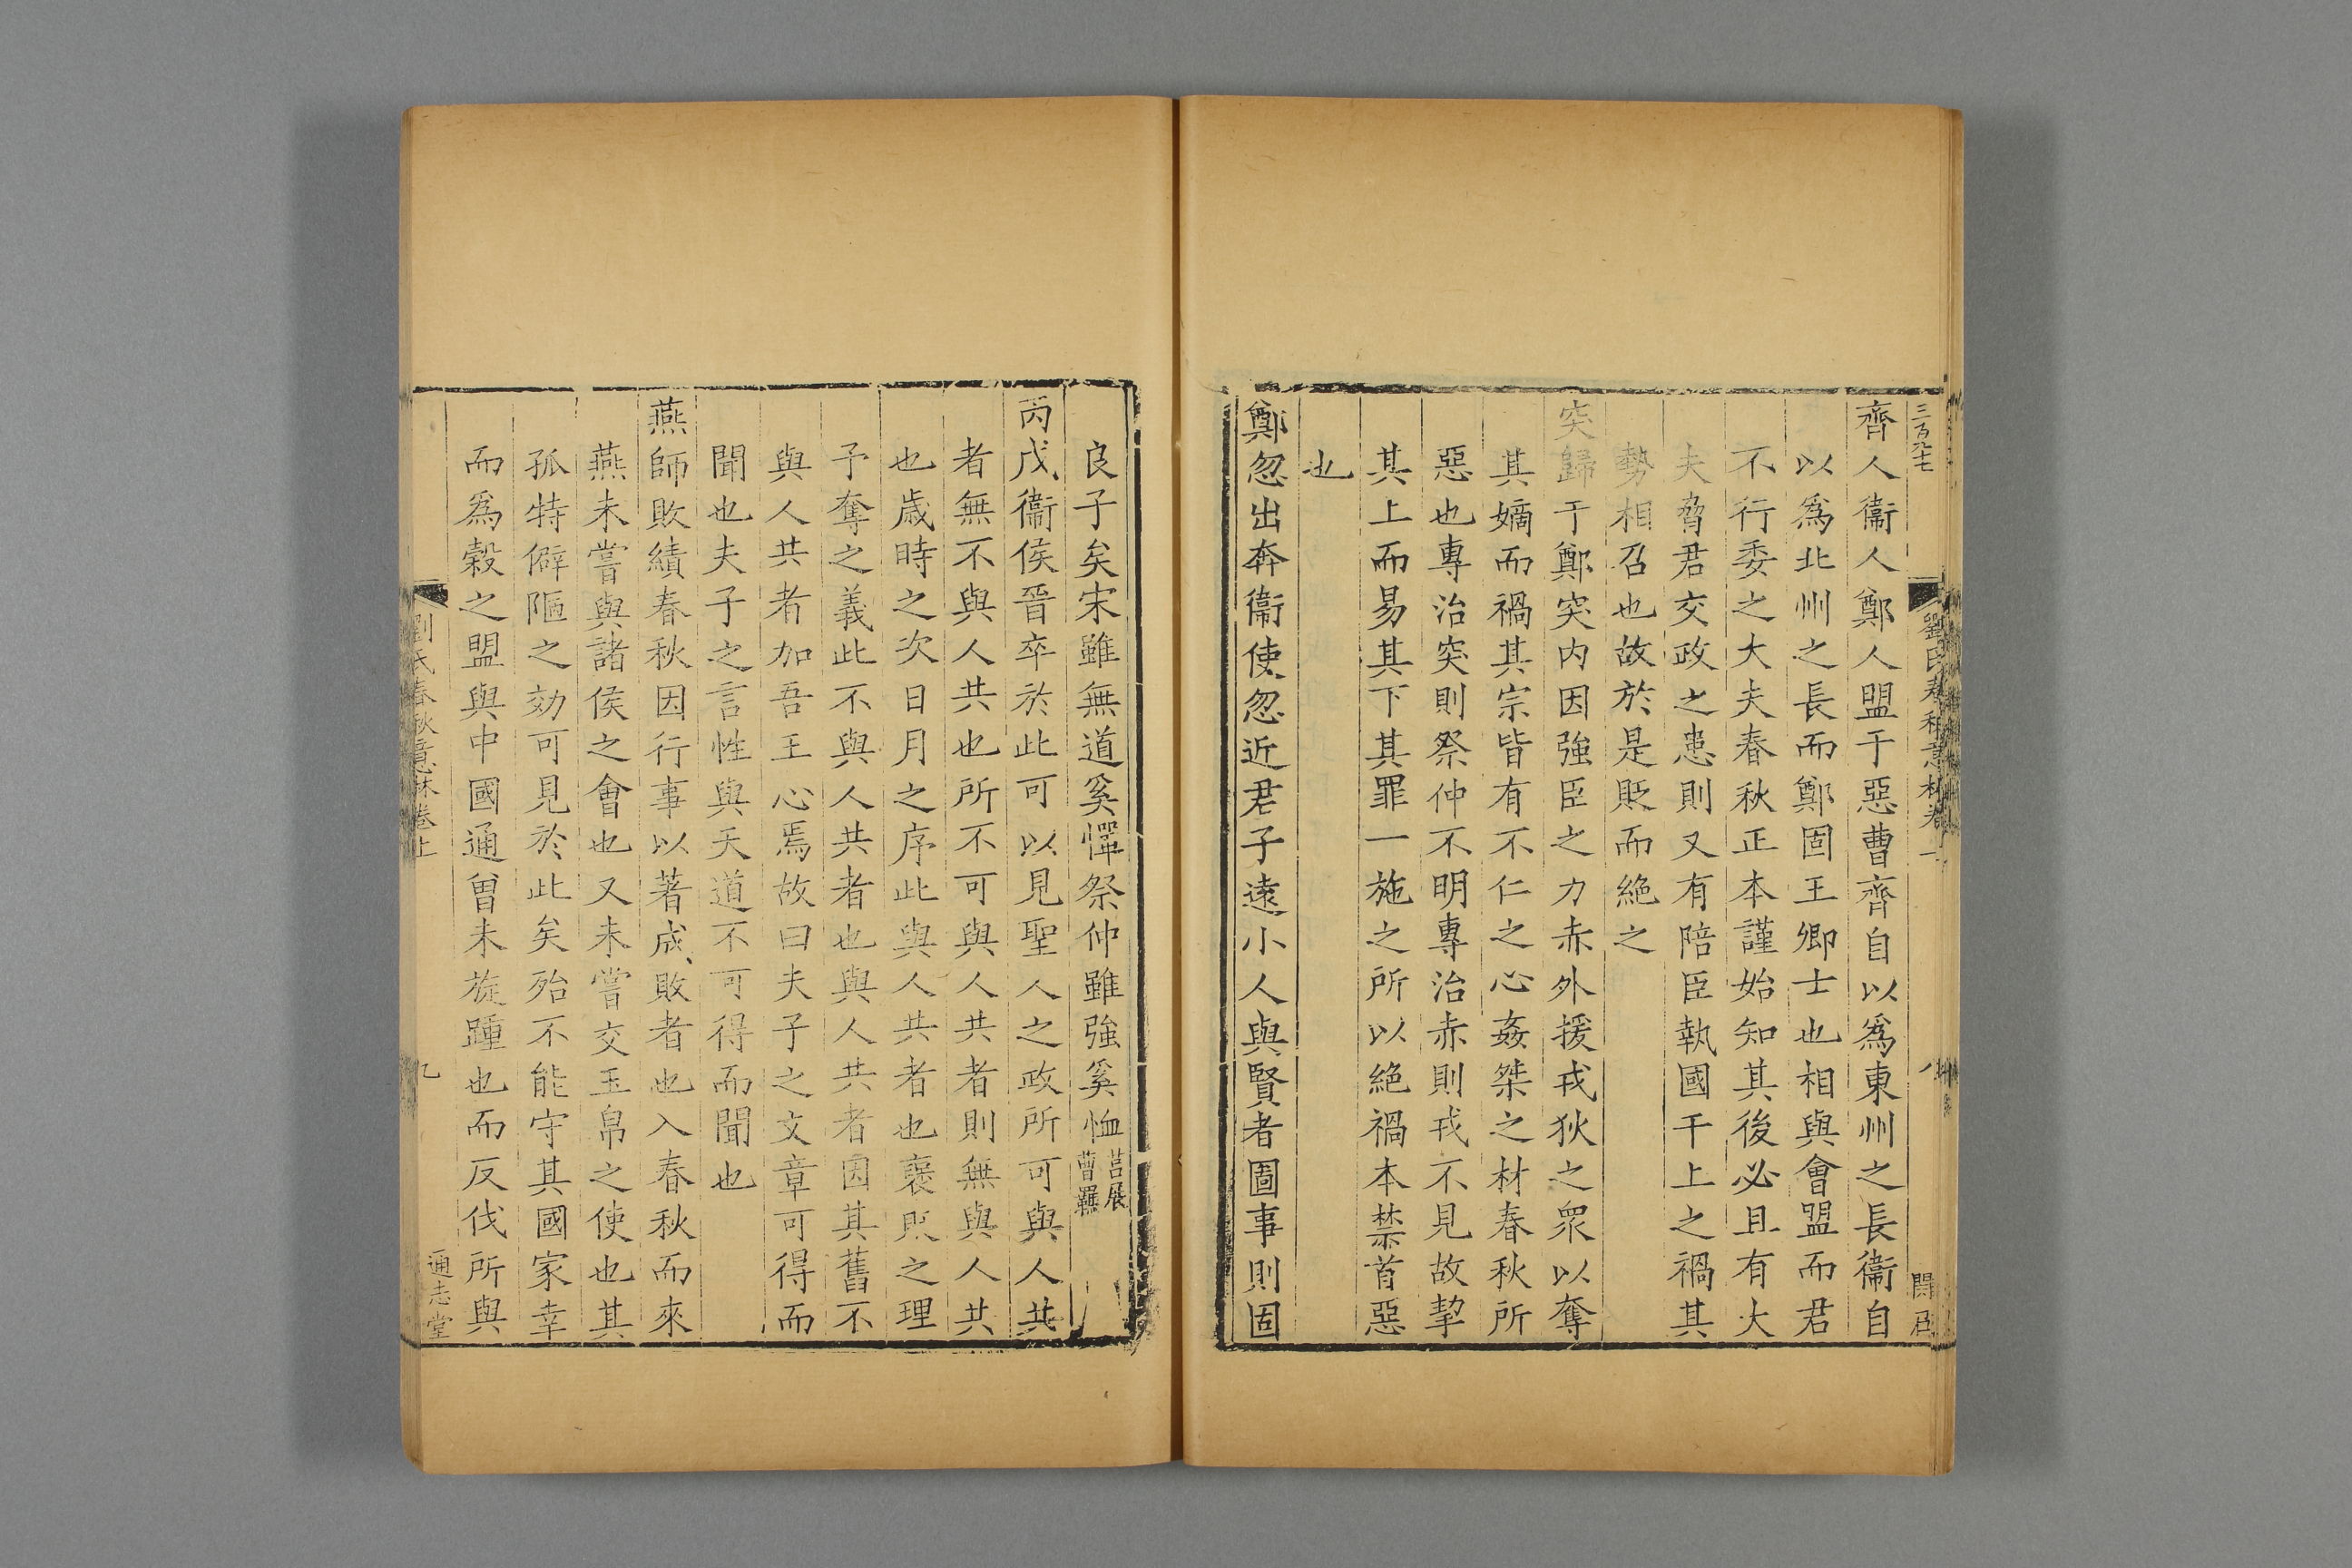 三百九十七
齊人衞人鄭人盟于惡曹齊自以爲東州之長衞自
以爲北州之長而鄭固王卿士也相與會盟而君
不行委之大夫春秋正本謹始知其後必且有大
夫脅君交政之患則又有陪臣執國干上之禍其
勢相召也故於是貶而絶之
突歸于鄭突内因強臣之力赤外援戎狄之衆以奪
其嫡而禍其宗皆有不仁之心姦桀之材春秋所
惡也專治突則祭仲不明專治赤則戎不見故挈
其上而易其下其罪一施之所以絶禍本禁首惡
也
鄭忽出奔衞使忽近君子遠小人與賢者圖事則固
良子矣宋雖無道奚憚祭仲雖強奚恤莒展曹羈
丙戌衞侯晉卒於此可以見聖人之政所可與人共
者無不與人共也所不可與人共者則無與人共
也歳時之次日月之序此與人共者也襃貶之理
予奪之義此不與人共者也與人共者因其舊不
與人共者加吾王心焉故曰夫子之文章可得而
聞也夫子之言性與天道不可得而聞也
燕師敗績春秋因行事以著成敗者也入春秋而來
燕未嘗與諸侯之會也又未嘗交玉帛之使也其
孤特僻陋之効可見於此矣殆不能守其國家幸
而爲穀之盟與中國通曾未旋踵也而反伐所與
劉氏春秋意林卷上
九
通志堂